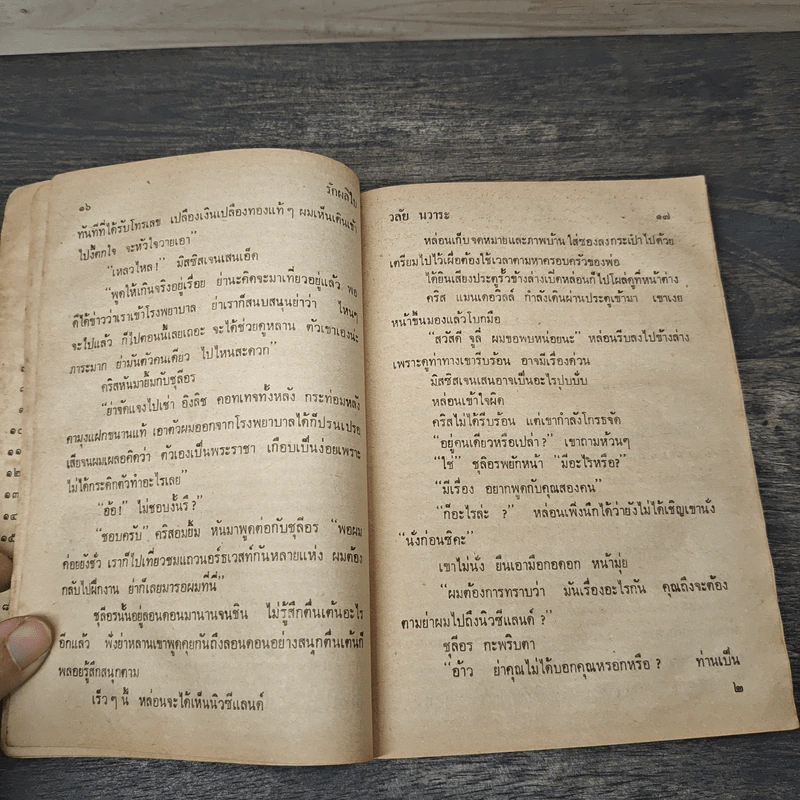 ๑๖
รักผลิใบ
ทันทีที่ได้รับโทรเลข เปลืองเงินเปลืองทองแท้ๆ ผมเห็นเดินเข้า
ไปงี้ตกใจ จะหัวใจวายเอา”
“เหลวไหล!” มิสซิสเจนเสนเอ็ด
“พูดให้เกินจริงอยู่เรื่อย ย่านะคิดจะมาเที่ยวอยู่แล้ว พอ
ดีได้ข่าวว่าเราเข้าโรงพยาบาล ย่าเราก็สนบสนุนย่าว่า ไหนๆ
จะไปแล้ว ก็ไปตอนนี้เลยเถอะ จะได้ช่วยดูหลาน ตัวเขาเองน่ะ
ภาระมาก ย่ามันตัวคนเดียว ไปไหนสะดวก”
คริสหันมายิ้มกับชุลีอร
“ย่าจัดแจงไปเช่า อิงลิช คอทเทจทั้งหลัง กระท่อมหลัง
คามุงแฝกขนานแท้ เอาตัวผมออกจากโรงพยาบาลได้ก็ปรนเปรอ
เสียจนผมเผลอคิดว่า ตัวเองเป็นพระราชา เกือบเป็นง่อยเพราะ
ไม่ได้กระดิกตัวทำอะไรเลย”
“อ้อ!” ไม่ชอบงั้นรึ ?”
“ชอบครับ” คริสอมยิ้ม หันมาพูดต่อกับชุลีอร “พอผม
ค่อยยังชั่ว เราก็ไปเที่ยวชมแถวนอร์ธเวสท์กันหลายแห่ง ผมต้อง
กลับไปฝึกงาน ย่าก็เลยมารอผมที่นี่”
ชุลีอรนั้นอยู่ลอนดอนมานานจนชิน ไม่รู้สึกตื่นเต้นอะไร
อีกแล้ว ฟังย่าหลานเขาพูดคุยกันถึงลอนดอนอย่างสนุกตื่นเต้นก็
พลอยรู้สึกสนุกตาม
เร็วๆ นี้ หล่อนจะได้เห็นนิวซีแลนด์
วลัย นวาระ
๑๗
หล่อนเก็บจดหมายและภาพบ้าน ใส่ซองลงกระเป๋าไปด้วย
เตรียมไปไว้เผื่อต้องใช้เวลาตามหาครอบครัวของพ่อ
ได้ยินเสียงประตูรั้วข้างล่างเปิดหล่อนก็ไปโผล่ดูที่หน้าต่าง
คริส แมนเดอวิลล์ กำลังเดินผ่านประตูเข้ามา เขาเงย
หน้าขึ้นมองแล้วโบกมือ
“สวัสดี จูลี่ ผมขอพบหน่อยนะ” หล่อนรีบลงไปข้างล่าง
เพราะดูท่าทางเขารีบร้อน อาจมีเรื่องด่วน
มิสซิสเจนเสนอาจเป็นอะไรปุบปับ
หล่อนเข้าใจผิด
คริสไม่ได้รีบร้อน แต่เขากำลังโกรธจัด
“อยู่คนเดียวหรือเปล่า ?” เขาถามห้วนๆ
“ใช่” ชุลีอรพยักหน้า “มีอะไรหรือ?”
“มีเรื่อง อยากพูดกับคุณสองคน”
“ก็อะไรล่ะ ?” หล่อนเพิ่งนึกได้ว่ายังไม่ได้เชิญเขานั่ง
“นั่งก่อนซิคะ”
เขาไม่นั่ง ยืนเอามือกอดอก หน้ามุ่ย
“ผมต้องการทราบว่า มันเรื่องอะไรกัน คุณถึงจะต้อง
ตามย่าผมไปถึงนิวซีแลนด์ ?”
ชุลีอร กะพริบตา
“อ้าว ย่าคุณไม่ได้บอกคุณหรอกหรือ ? ท่านเป็น
๒